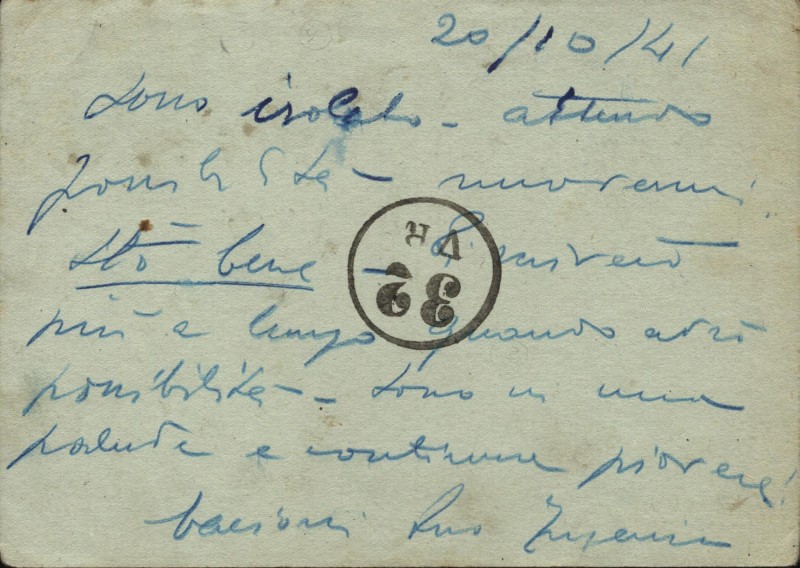 20/10/41
Sono isolato - attendo
possibilità - muovermi.
Stò bene - scriverò
più a lungo quando avrò
possibilità - Sono in una
palude e continua piovere!
bacioni Suo
32
VR